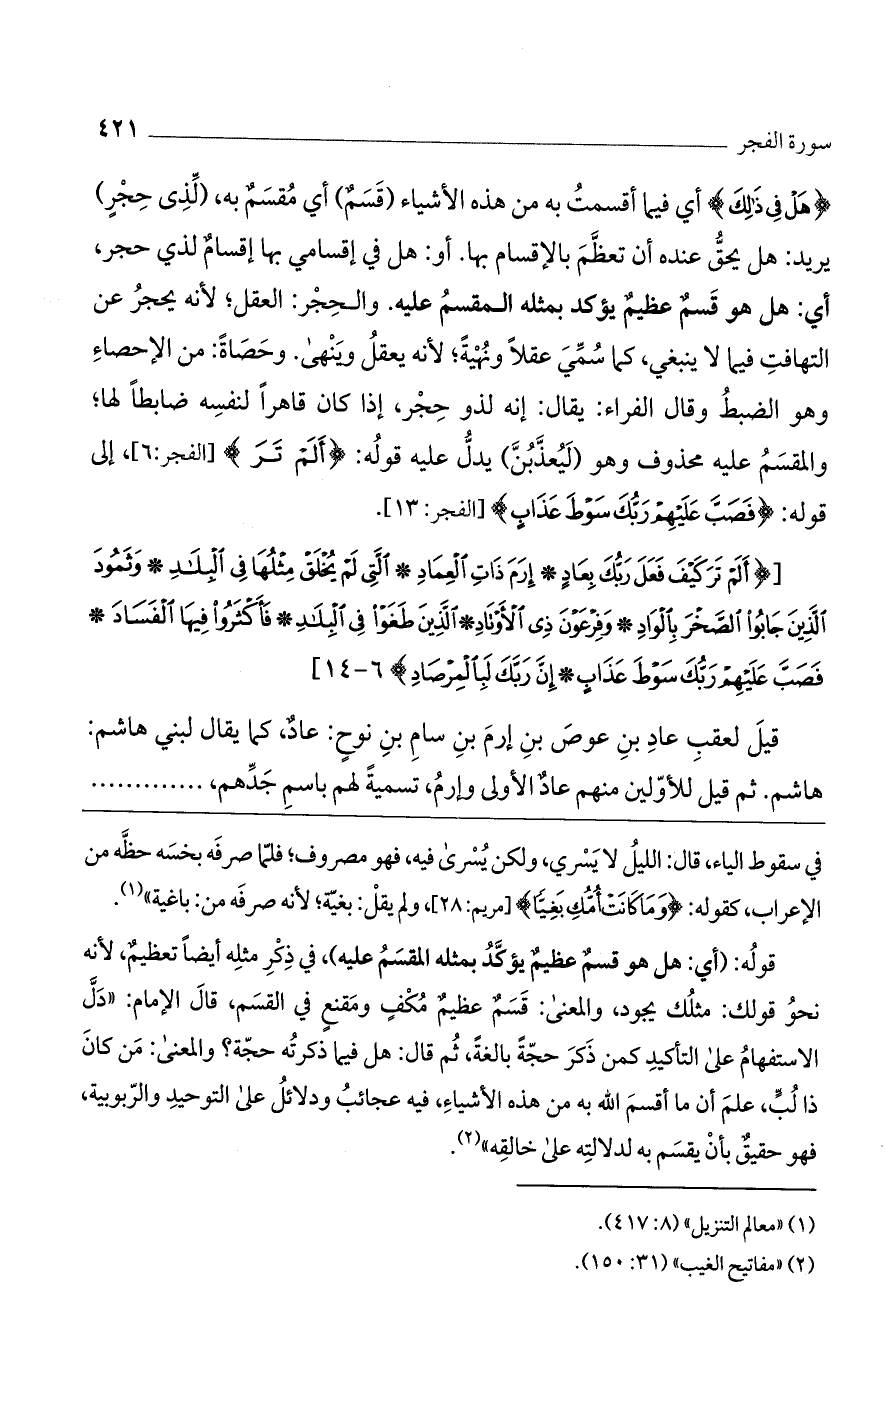 سورة الفجر ٤٢١
﴿هَلْ فِى ذَٰلِكَ﴾ أي فيما أقسمتُ به من هذه الأشياء (قَسَمٌ) أي مُقسَمٌ به، (لِّذِى حِجْرٍ)
يريد: هل يحقُّ عنده أن تعظَّمَ بالإقسام بها. أو: هل في إقسامي بها إقسامٌ لذي حجر،
أي: هل هو قَسمٌ عظيمٌ يؤكد بمثله المقسمُ عليه. والحِجْر: العقل؛ لأنه يحجرُ عن
التهافتِ فيما لا ينبغي، كما سُمِّيَ عقلاً ونُهْيَةً؛ لأنه يعقلُ ويَنْهىٰ. وحَصَاةً: من الإحصاءِ
وهو الضبطُ وقال الفراء: يقال: إنه لذو حِجْر، إذا كان قاهراً لنفسِه ضابطاً لها؛
والمقسَمُ عليه محذوف وهو (لَيُعذَّبُنَّ) يدلُّ عليه قولُه: ﴿أَلَمْ تَرَ﴾ [الفجر:٦]، إلى
قوله: ﴿فَصَبَّ عَلَيْهِمْ رَبُّكَ سَوْطَ عَذَابٍ﴾ [الفجر: ١٣].
[﴿أَلَمْ تَرَ كَيْفَ فَعَلَ رَبُّكَ بِعَادٍ * إِرَمَ ذَاتِ الْعِمَادِ * الَّتِى لَمْ يُخْلَقْ مِثْلُهَا فِى الْبِلَـٰدِ * وَثَمُودَ
الَّذِينَ جَابُوا الصَّخْرَ بِالْوَادِ * وَفِرْعَوْنَ ذِى الْأَوْتَادِ * الَّذِينَ طَغَوْا فِى الْبِلَـٰدِ * فَأَكْثَرُوا فِيهَا الْفَسَادَ *
فَصَبَّ عَلَيْهِمْ رَبُّكَ سَوْطَ عَذَابٍ * إِنَّ رَبَّكَ لَبِالْمِرْصَادِ﴾ ٦-١٤]
قيلَ لعقبِ عادِ بنِ عوصَ بنِ إرمَ بنِ سامِ بنِ نوحٍ: عادٌ، كما يقال لبني هاشم:
هاشم. ثم قيل للأوّلين منهم عادٌ الأولى وإرمُ، تسميةً لهم باسمِ جَدِّهم، .............
في سقوط الياء، قال: الليلُ لا يَسْري، ولكن يُسْرىٰ فيه، فهو مصروف؛ فلمّا صرفَه بخسَه حظَّه من
الإعراب، كقوله: ﴿وَمَا كَانَتْ أُمُّكِ بَغِيًّا﴾ [مريم:٢٨]، ولم يقلْ: بغيّة؛ لأنه صرفَه من: باغية»(١).
قولُه: (أي: هل هو قسمٌ عظيمٌ يؤكَّدُ بمثله المقسَمُ عليه)، في ذِكْرِ مثلِه أيضاً تعظيمٌ، لأنه
نحوُ قولك: مثلُك يجود، والمعنىٰ: قَسَمٌ عظيمٌ مُكْفٍ ومَقنع في القسَم، قالَ الإمام: «دَلَّ
الاستفهامُ علىٰ التأكيدِ كمن ذَكَرَ حجّةً بالغةً، ثُم قال: هل فيما ذكرتُه حجّة؟ والمعنىٰ: مَن كانَ
ذا لُبٍّ، علمَ أن ما أقسمَ الله به من هذه الأشياءِ، فيه عجائبُ ودلائلُ علىٰ التوحيدِ والرّبوبية،
فهو حقيقٌ بأنْ يقسَم به لدلالتِه علىٰ خالقِه»(٢).
(١) «معالم التنزيل» (٨: ٤١٧).
(٢) «مفاتيح الغيب» (٣١: ١٥٠).